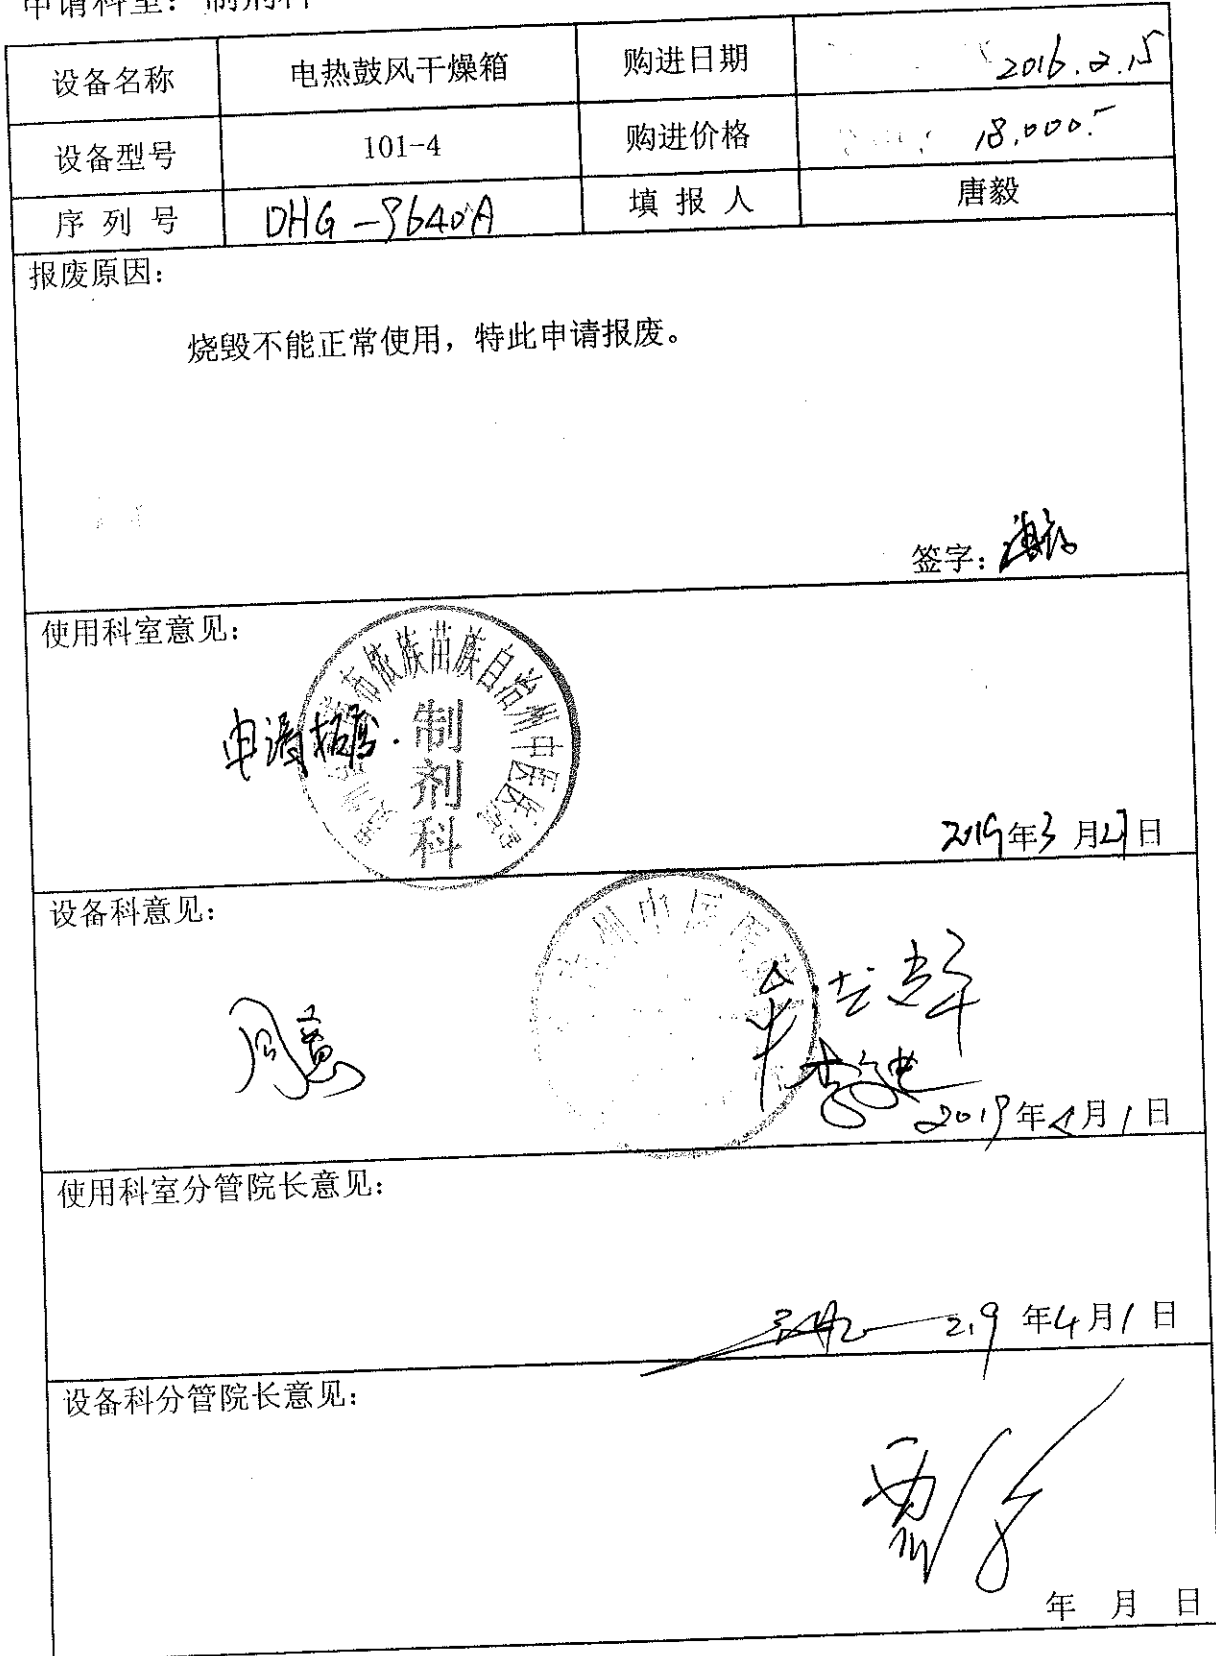 申请科室：制剂科
设备名称 电热鼓风干燥箱 购进日期 2016.2.15
设备型号 101-4 购进价格 18,000.-
序列号 DHG-9640A 填报人 唐毅
报废原因：
烧毁不能正常使用，特此申请报废。
签字：
使用科室意见：
布依族苗族自治州中医医院
申请报废.
制剂科
2019年3月27日
设备科意见：
州中医医院
同意
2019年4月1日
使用科室分管院长意见：
年4月1日
设备科分管院长意见：
年 月 日